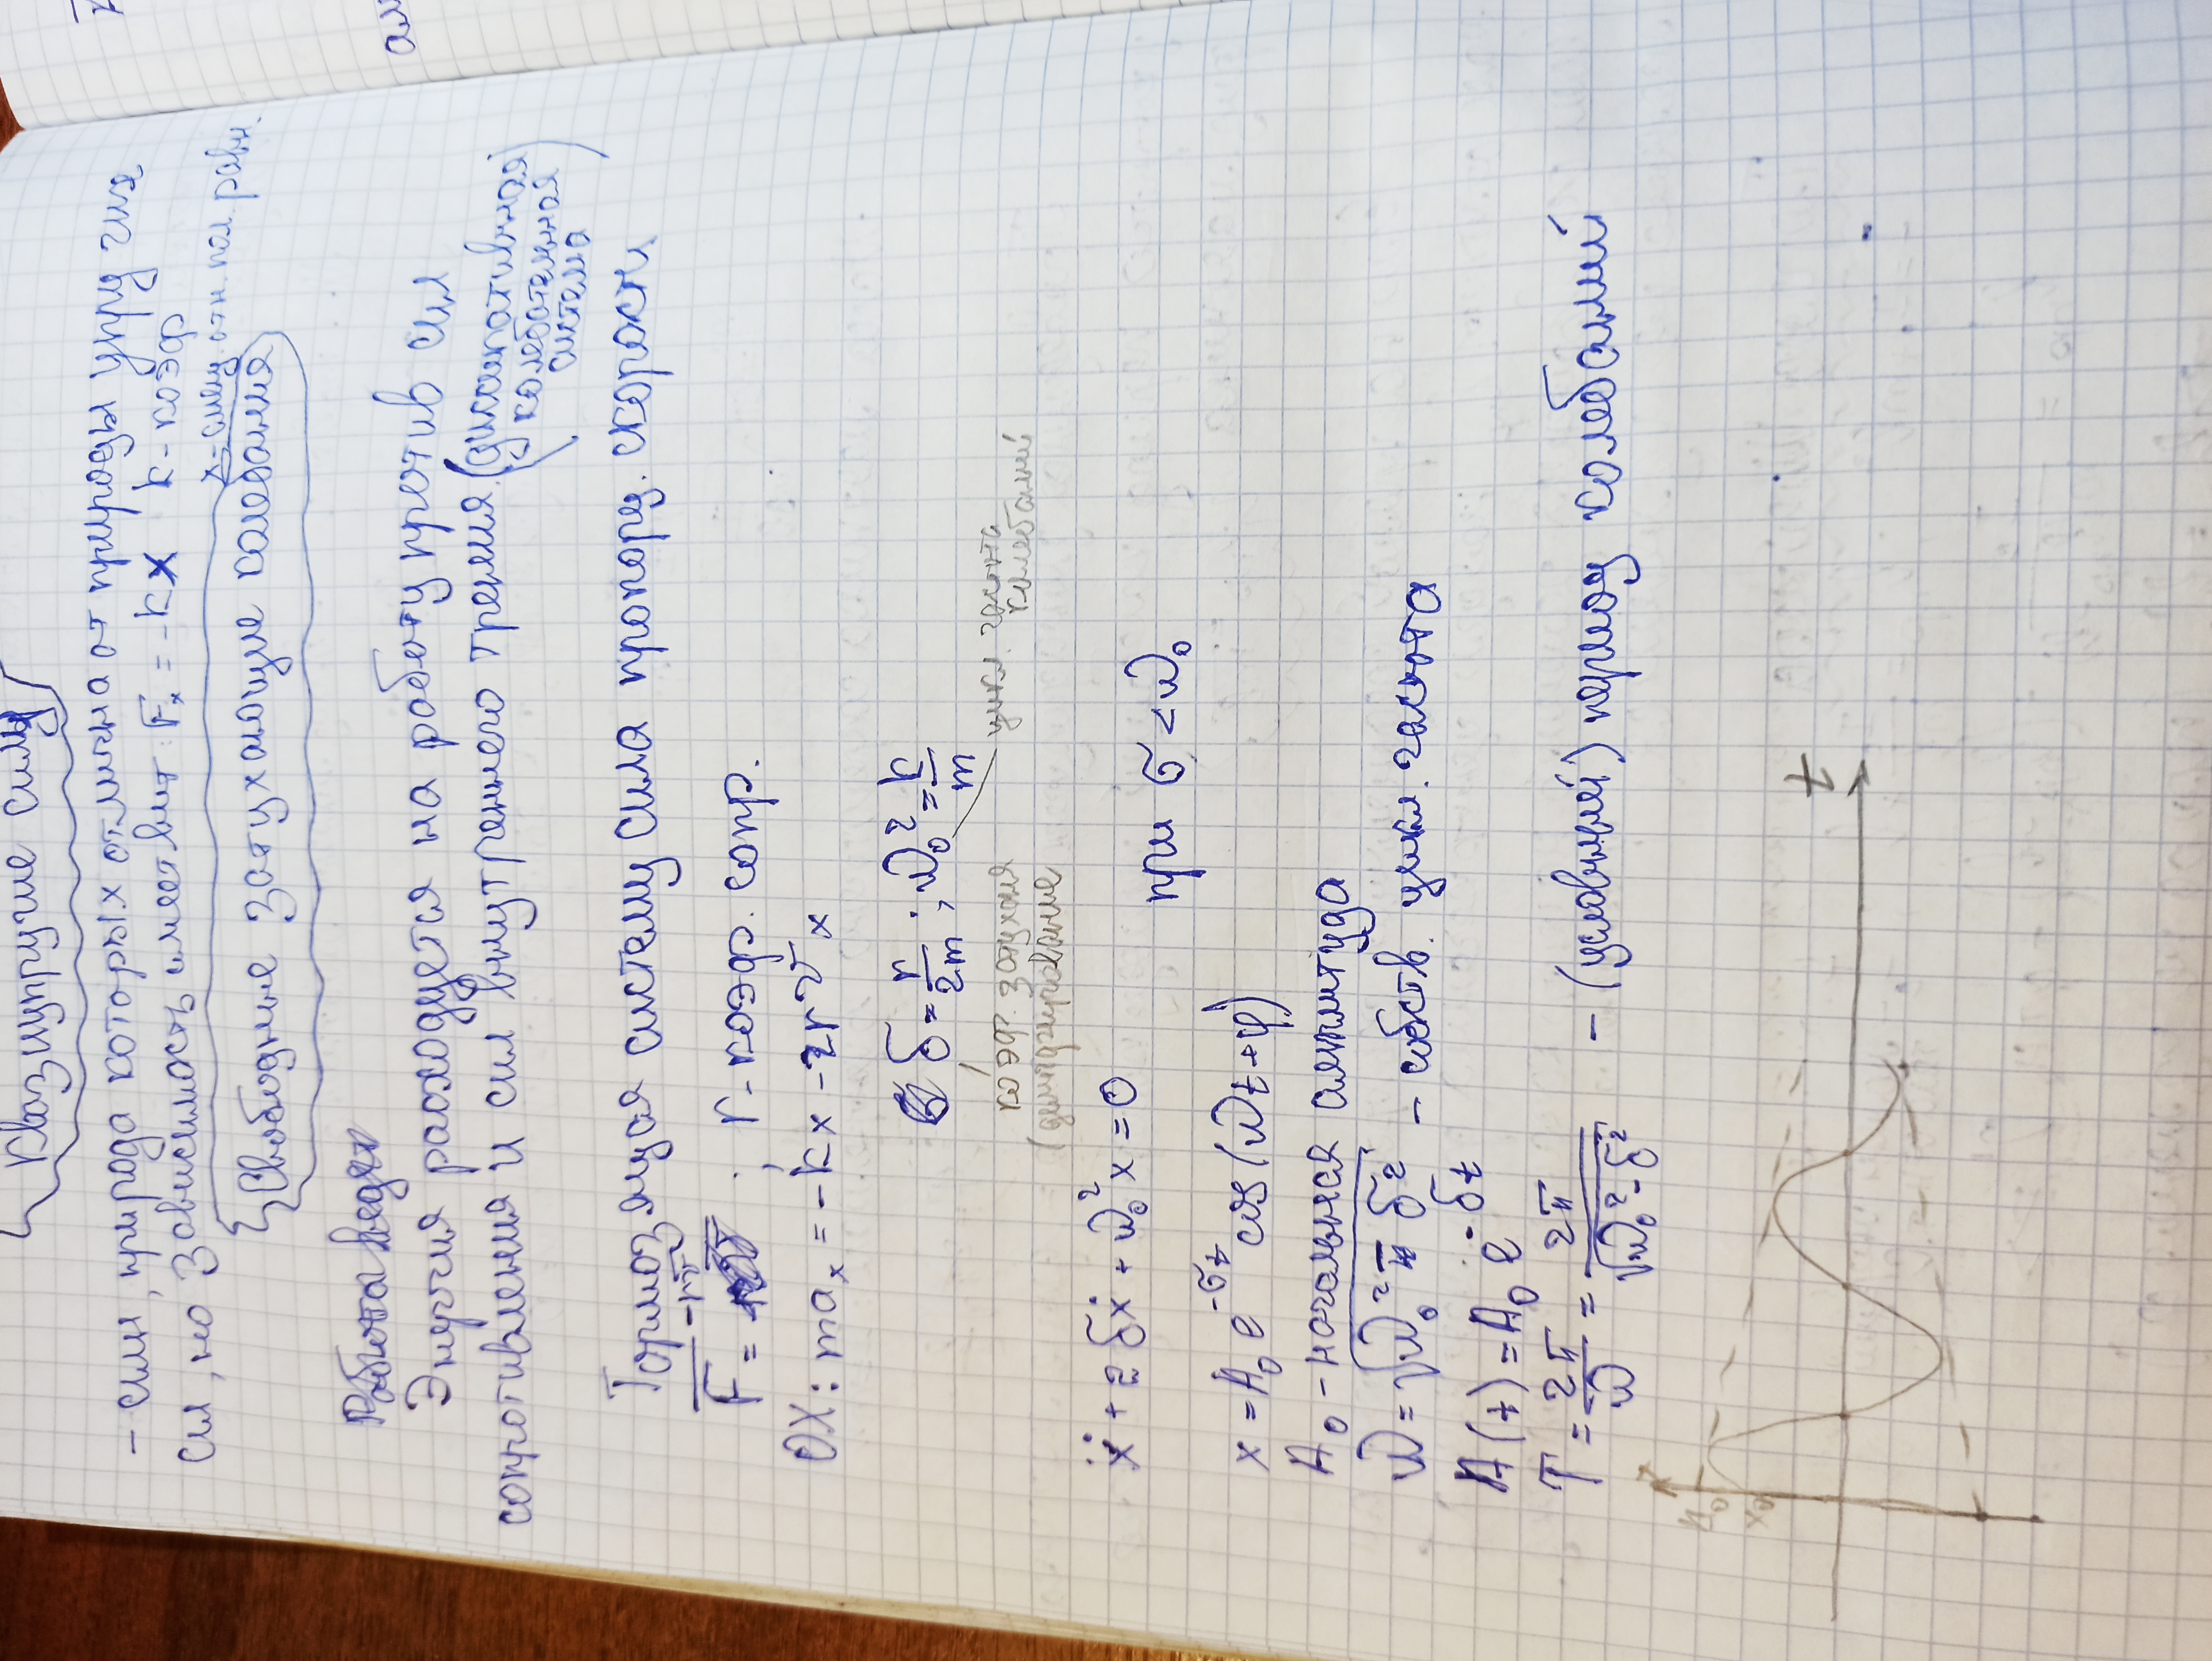 Квазиупругие силы
- силы, природа которых отлична от природы упругих
сил, но зависимость имеет вид: Fₓ = -kx k - коэф
x - смещ. отн. пол. равн.
Свободные затухающие колебания
Работа ведёт
Энергия расходуется на работу против сил
сопротивления и сил внутреннего трения (диссипативная
колебательная
система)
Тормозящая систему сила пропорц. скорости
F = -rv ; r - коэф. сопр.
OX: maₓ = -kx - rvₓ
δ = r/2m ; ω₀² = k/m
коэф. затухания
цикл. частота
колебаний
(демпфирование
ẍ + 2δẋ + ω₀²x = 0
при σ < ω₀
x = A₀ e^(-σt) cos(ωt + φ)
A₀ - начальная амплитуда
ω = √(ω₀² - δ²) - собств. цикл. частота
A(t) = A₀ e^(-δt)
T = 2π/ω = 2π/√(ω₀² - δ²) - (условный) период колебаний
x
A₀
x₀
t